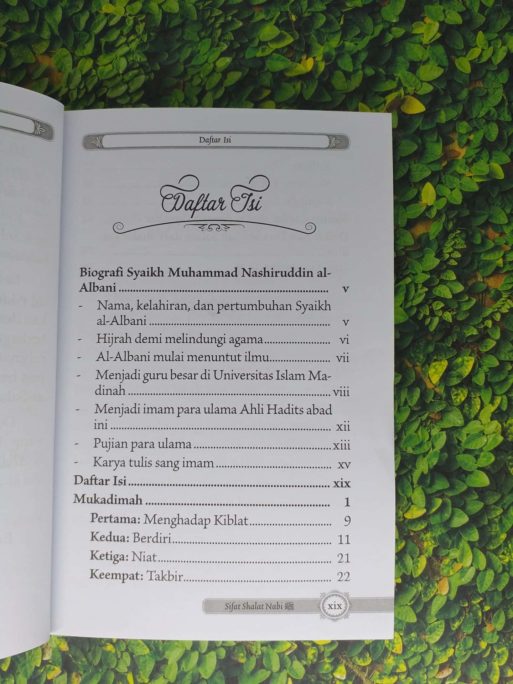 Daftar Isi
Daftar Isi
Biografi Syaikh Muhammad Nashiruddin al-
Albani ........ v
- Nama, kelahiran, dan pertumbuhan Syaikh
al-Albani ........ v
- Hijrah demi melindungi agama ........ vi
- Al-Albani mulai menuntut ilmu ........ vii
- Menjadi guru besar di Universitas Islam Ma-
dinah ........ viii
- Menjadi imam para ulama Ahli Hadits abad
ini ........ xii
- Pujian para ulama ........ xiii
- Karya tulis sang imam ........ xv
Daftar Isi ........ xix
Mukadimah ........ 1
Pertama: Menghadap Kiblat ........ 9
Kedua: Berdiri ........ 11
Ketiga: Niat ........ 21
Keempat: Takbir ........ 22
Sifat Shalat Nabi ﷺ xix